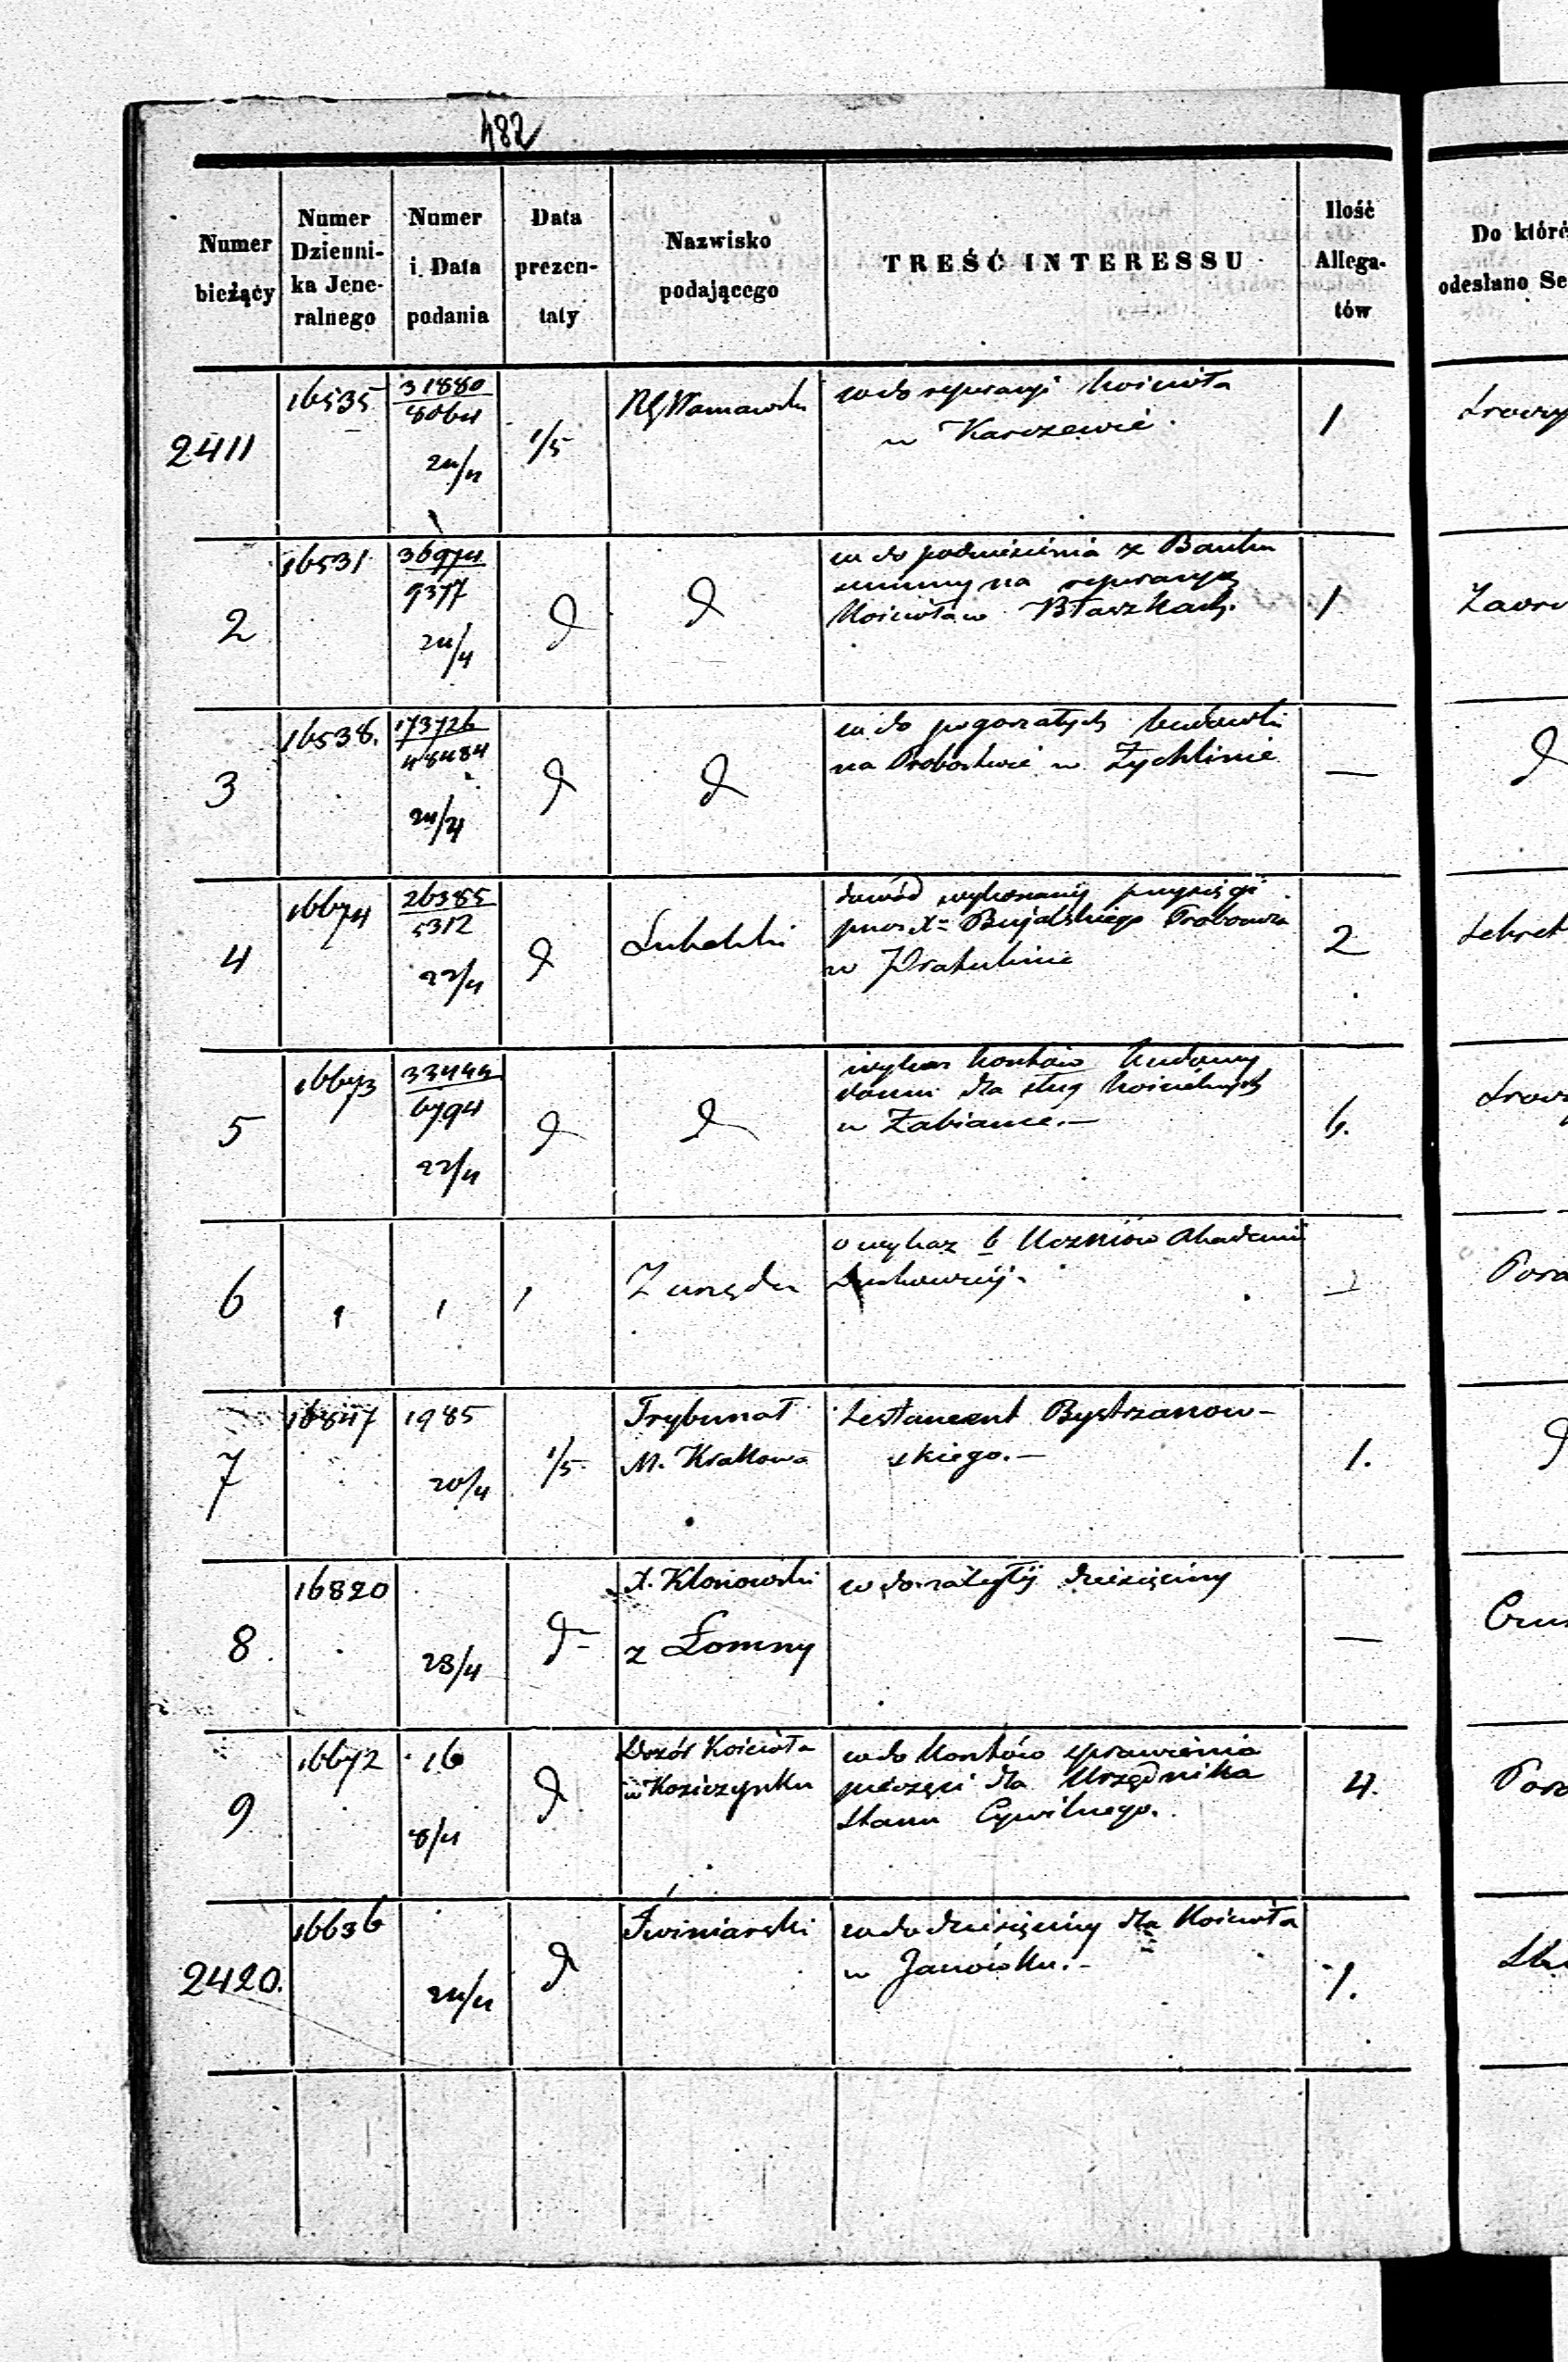 482
Numer bieżący
Numer Dzienni- ka Jene- ralnego
Numer i Data podania
Data prezen- taty
Nazwisko podającego
TREŚĆ INTERESSU
Ilość Allega- tów
Do które
odesłano Se
2411
16535
31880
8064
24/4
1/5
RG Warszawski
w do reperacyi kościoła
w Karczewie.
1
2
16531
36974
9377
24/4
d
d
w do podniesienia z Banku
summy na reperacyą
kościoła w Błaszkach.
1
3
16538.
173726
48484
24/4
d
d
w do pogorzałych budowli
na Probostwie w Żychlinie
—
d
4
16674
26385
5312
22/4
d
Lubelski
dowód wykonanej przysięgi
przez X. Bujalskiego Proboszcza
w Pratulinie
2
5
16673
33444
6794
22/4
d
d
wykaz kosztów budowy
domu dla sług kościelnych
w Żabiance.—
6.
6
Z urzędu
o wykaz 6 Uczniów Akademii
Duchownej.
7
16847
1985
20/4
1/5
Trybunał
M. Krakowa
testament Bystrzanow-
skiego.—
1.
d
8
16820
28/4
d
X. Klonowski
z Łomny
w do zaległej dziesięciny
—
9
16672
16
8/4
d
Dozór Kościoła
w Koziczynku
w do kosztów sprawienia
pieczęci dla Urzędnika
Stanu Cywilnego.
4.
2420.
16636
24/4
d
Świniarski
w do dziesięciny dla Kościoła
w Janówku.-
1.